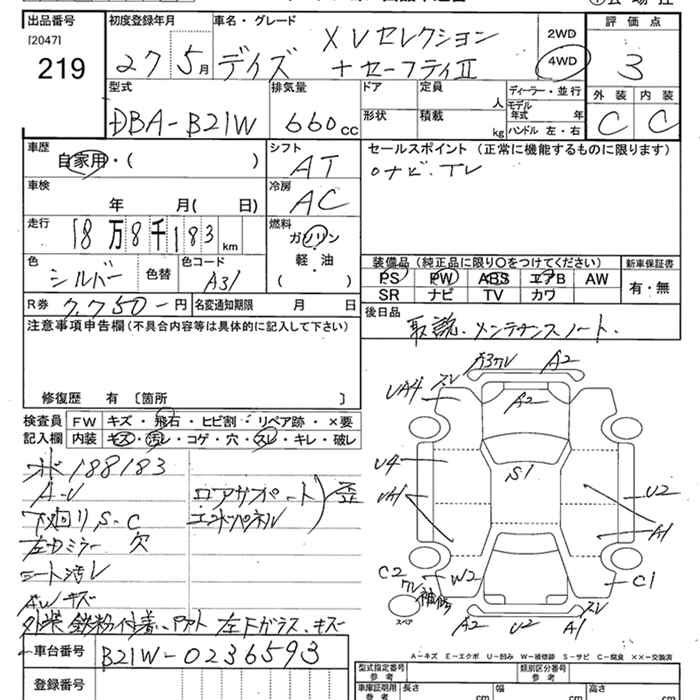 出品番号
[2047]
219
初度登録年月
27 5月
車名・グレード
デイズ
XVセレクション
+セーフティII
2WD
4WD
評価点
3
外装 内装
C C
型式
DBA-B21W
排気量
660cc
ドア
形状
定員
人
積載
kg
ディーラー・並行
モデル年式 年
ハンドル 左・右
車歴
自家用・( )
シフト
AT
セールスポイント (正常に機能するものに限ります)
○ナビ・TV
車検
年 月( 日)
冷房
AC
走行
18万8千183km
燃料
ガソリン
軽・油
( )
色
シルバー
色替
色コード
A31
装備品 (純正品に限り○をつけてください)
PS PW ABS エアB AW
SR ナビ TV カワ
新車保証書
有・無
R券 7,750-円
名変通知期限 月 日
後日品
取説・メンテナンスノート.
注意事項申告欄 (不具合内容等は具体的に記入して下さい)
修復歴 有 〔箇所 〕
検査員記入欄
FW キズ・飛石・ヒビ割・リペア跡・×要
内装 キズ・汚レ・コゲ・穴・スレ・キレ・破レ
188183
A-U
下回りS-C
左ドミラー 穴
シート汚レ
AWキズ
外装 鉄粉付着、左Fガラス、キズ
ロアサポート
エンドパネル
歪
A3ワレ A2
UA4 スレ
A2
U4
S1
UA1
U2
A1
C2
ワレ
補修
W2
C1
スレ
A2 U2 A1
スペア
車台番号
B21W-0236593
A-キズ E-エクボ U-凹み W-補修跡 S-サビ C-腐食 ××-交換済
登録番号
型式指定番号
参考
類別区分番号
参考
車庫証明用
参考
長さ
cm
幅
cm
高さ
cm